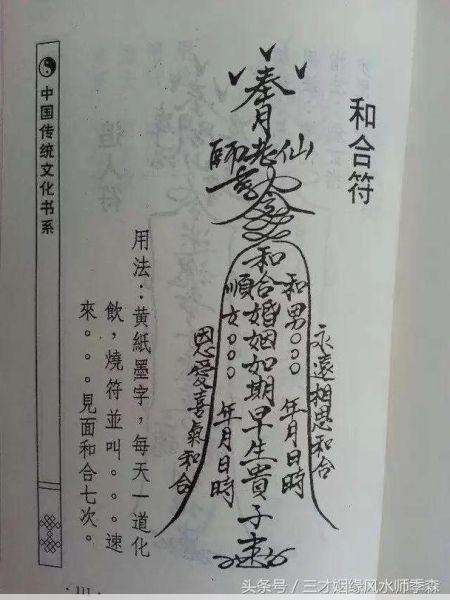 和合符
奉
月
師老仙
永遠相思和合
和男○○○ 年月日時
和合婚姻如期早生貴子
順女○○○ 年月日時
恩愛喜氣和合
用法：黄紙墨字，每天一道化
飲，燒符並叫。。。速
來。。。見面和合七次。
中国传统文化书系
·111
头条号 / 三才姻缘风水师季森